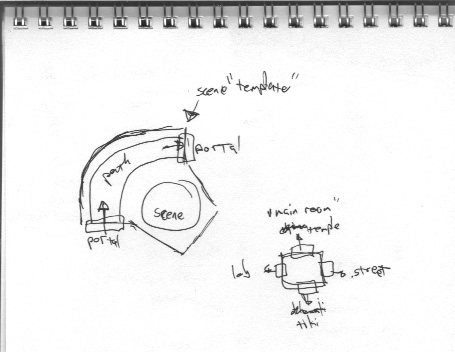 scene "template"
portal
path
scene
portal
"main room"
temple
lab
street
tiki